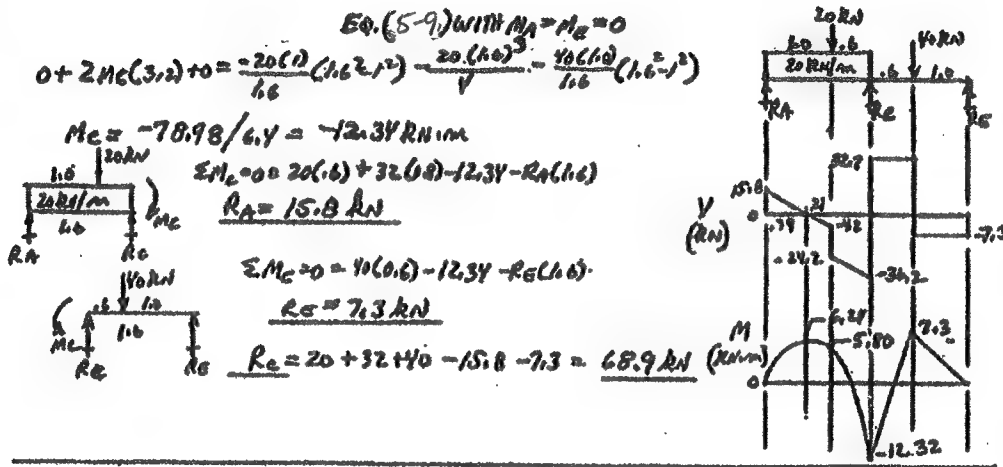 EQ.(5-9.) WITH MA = ME = 0
0 + 2MC(3.2) + 0 = -20(1)/1.6 (1.6²-1²) - 20(1.6)³/4 - 40(1.0)/1.6 (1.6²-1²)
MC = -78.98/6.4 = -12.34 KN·m
20KN
1.0
20KN/m
1.6
MC
RA
RC
ΣMC=0= 20(.6) + 32(0.8) -12.34 - RA(1.6)
RA = 15.8 KN
40KN
.6
1.0
1.6
MC
RC
RE
ΣMC=0= 40(0.6) -12.34 - RE(1.6).
RE = 7.3 KN
RC = 20 + 32 + 40 - 15.8 - 7.3 = 68.9 KN
20KN
40KN
1.0
.6
20KN/m
.6
1.0
RA
RC
RE
32.7
15.8
V
(KN)
0
.79
.21
-24.2
-36.2
-7.3
6.24
5.80
7.3
M
(KN·m)
0
-12.32